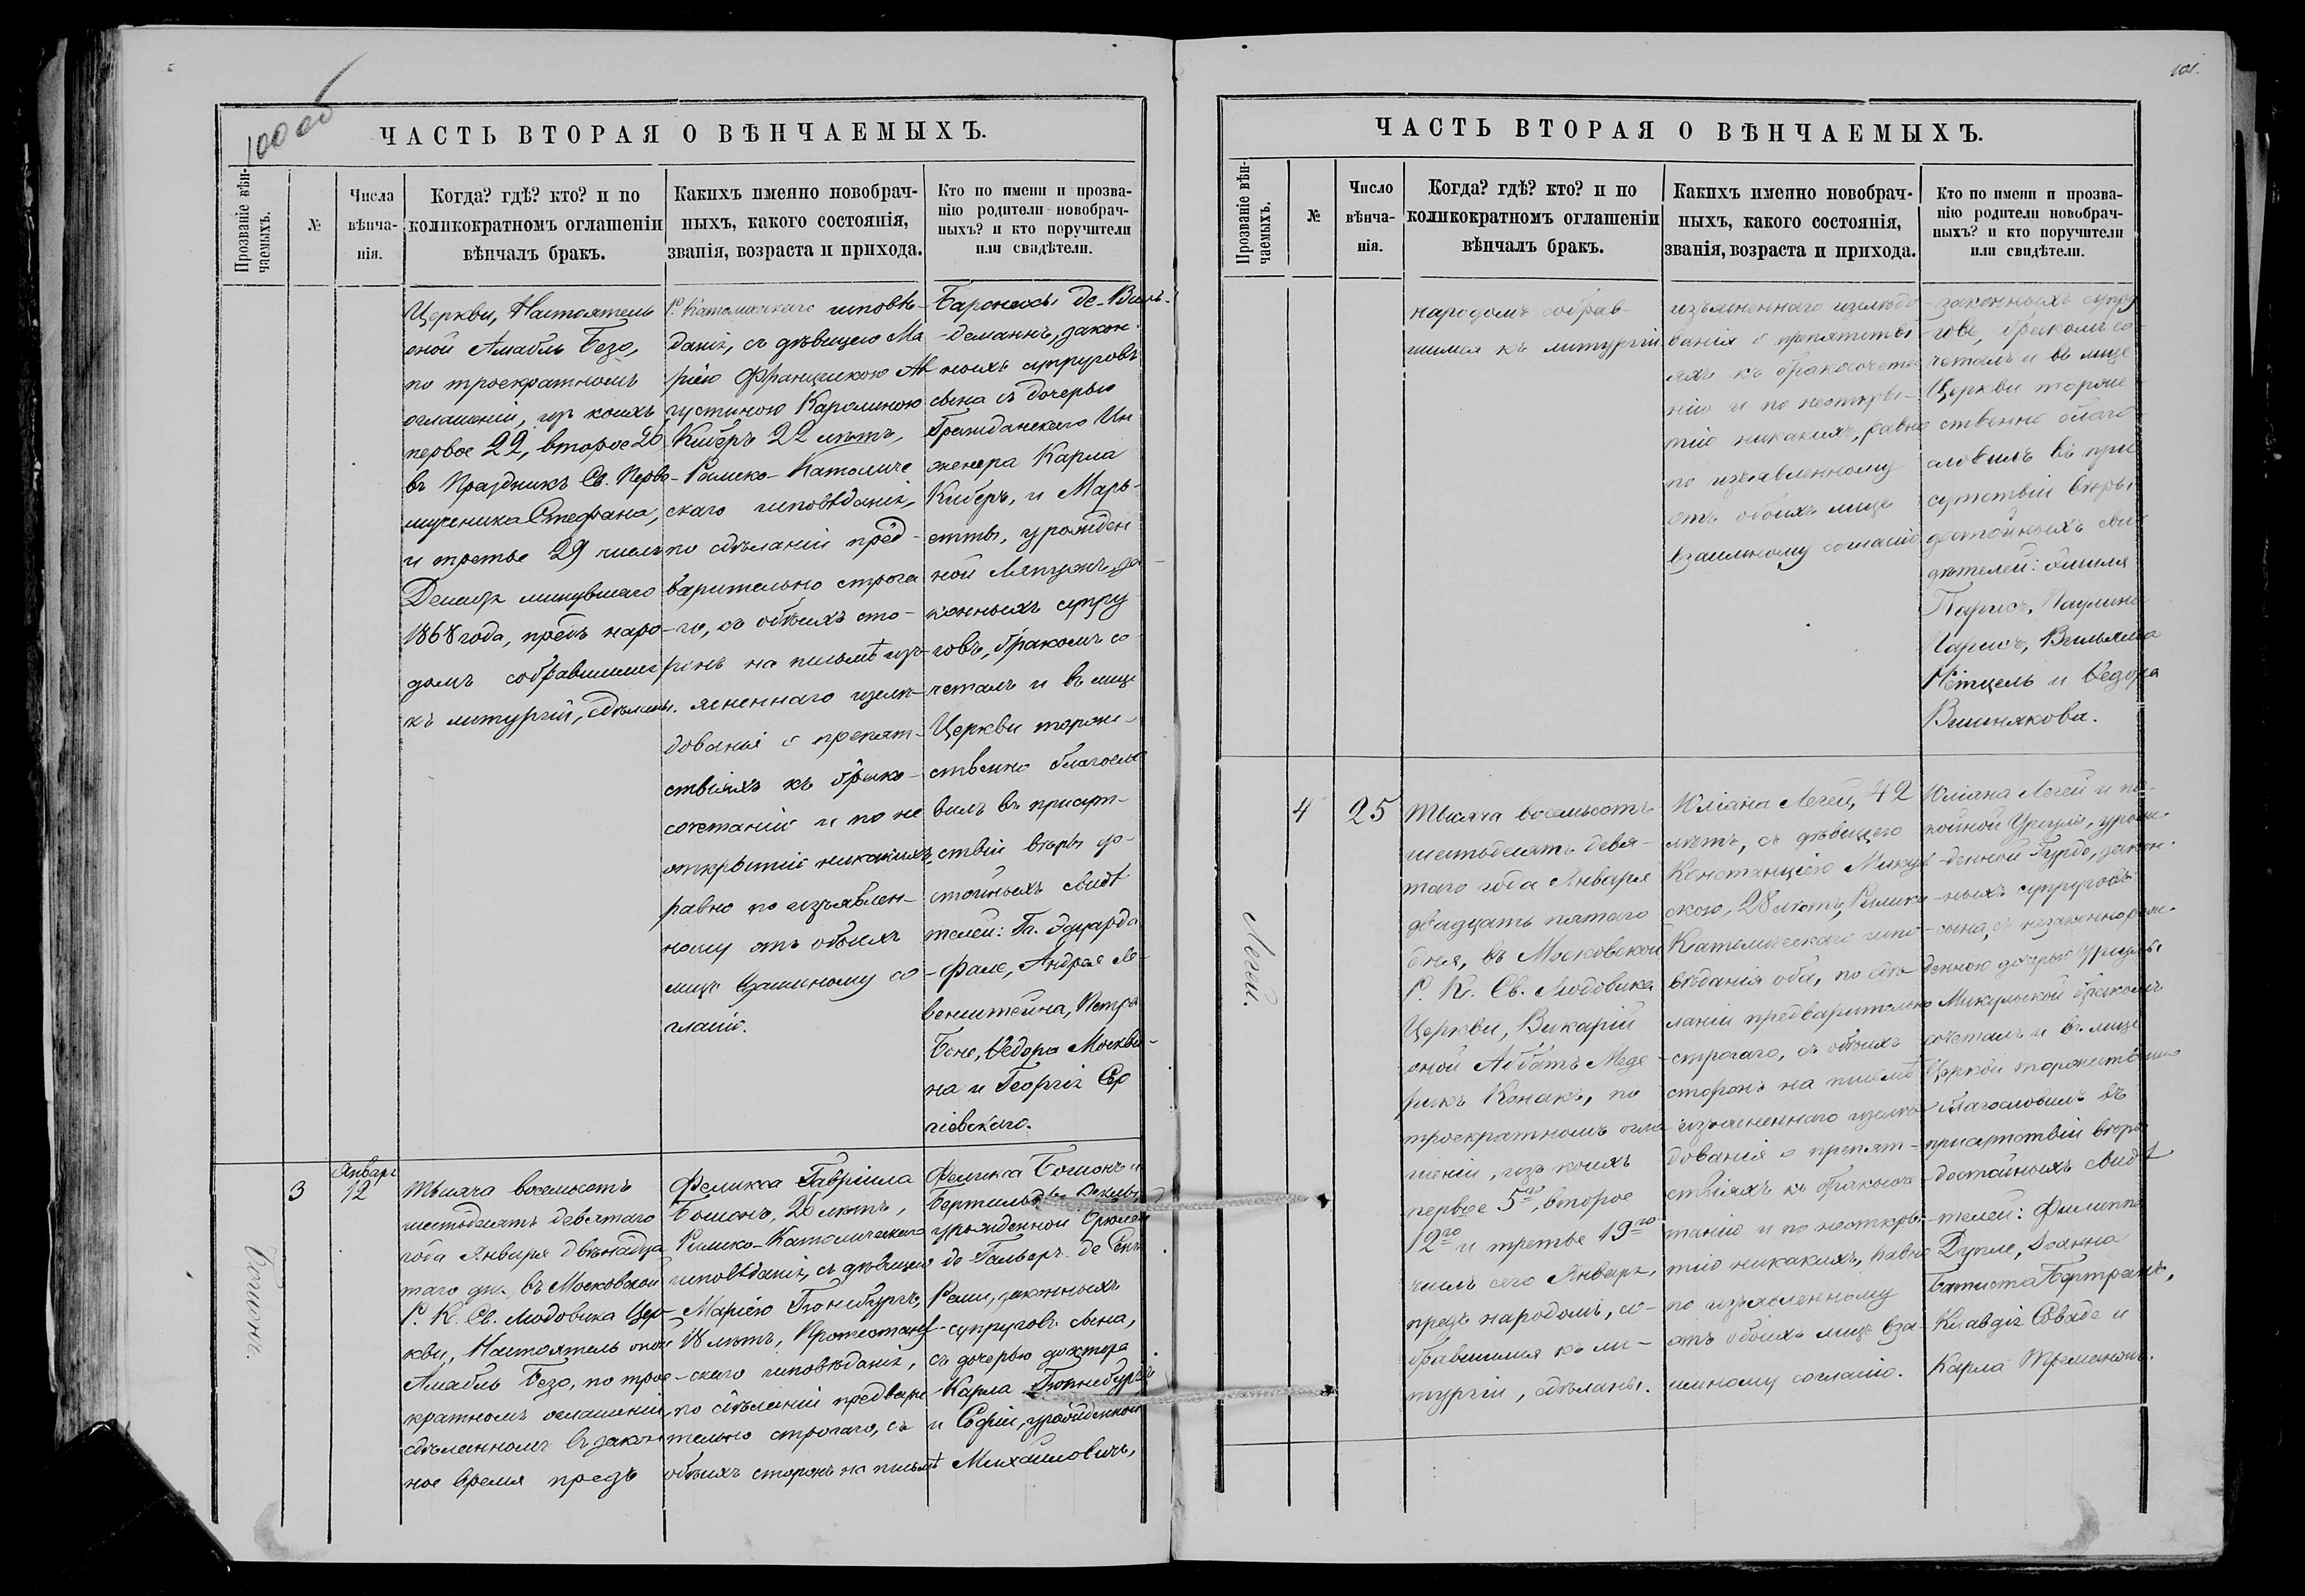 100 об
ЧАСТЬ ВТОРАЯ О ВѢНЧАЕМЫХЪ.
Прозваніе вѣн-
чаемыхъ.
№
Числа
вѣнча-
нія.
Когда? гдѣ? кто? и по
коликократномъ оглашеніи
вѣнчалъ бракъ.
Какихъ именно новобрач-
ныхъ, какого состоянія,
званія, возраста и прихода.
Кто по имени и прозва-
нію родители новобрач-
ныхъ? и кто поручители
или свидѣтели.
Церкви, Настоятель
оной Амабль Безо,
по троекратномъ
оглашеніи, изъ коихъ
первое 22, второе 26
въ Праздникъ Св. Перво-
мученика Стефана,
и третье 29 числъ
Декабря минувшаго
1868 года, предъ наро-
домъ собравшимся
къ литургіи, сдѣланы.
Р. Католическаго исповѣ-
данія, съ дѣвицею Ма
ріею Францискою Ав
густиною Каролиною
Киберъ 22 лѣтъ,
Римско-Католиче
скаго исповѣданія,
по сдѣланіи пред-
варительно строга
го, съ обѣихъ сто-
ронъ на письмѣ изъ-
ясненнаго изслѣ-
дованія о препят-
ствіяхъ къ брако-
сочетанію и по не
открытію никакихъ,
равно по изъявлен-
ному отъ обоихъ
лицъ взаимному со
гласію.
Баронессы де-Виль-
деманнъ, закон-
ныхъ супруговъ
сына съ дочерью
Гражданскаго Ин
женера Карла
Киберъ, и Марь-
етты, урожден
ной за
конныхъ супру
говъ, бракомъ со
четалъ и въ лице
Церкви торже-
ственно благосло
вилъ въ присут-
ствіи вѣры до-
стойныхъ свидѣ
телей: Гг. Эдуарда
Фале, Андрея Ле-
венштейна, Петра
Боне, Ѳедора Москви-
на и Георгія Сер
гіевскаго.
Бошонъ.
3
Январь
12
Тысяча восемьсотъ
шестьдесятъ девятаго
года Января двѣнадца
таго дня въ Московской
Р. К. Св. Людовика Цер-
кви, Настоятель оной
Амабль Безо, по трое-
кратномъ оглашеніи,
сдѣланномъ въ закон
ное время предъ
Феликса Гавріила
Бошонъ, 26 лѣтъ,
Римско-Католическаго
исповѣданія, съ дѣвицею
Маріею
18 лѣтъ, Протестант-
скаго исповѣданія,
по сдѣланіи предвари
тельно строгаго, съ
обѣихъ сторонъ на письмѣ
Феликса Бошонъ и
урожденной
де Гальеръ де Сенъ
Реми, законныхъ
супруговъ сына,
съ дочерью доктора
Карла
и Софіи, урожденной
Михайловичъ,
101.
ЧАСТЬ ВТОРАЯ О ВѢНЧАЕМЫХЪ.
Прозваніе вѣн-
чаемыхъ.
№
Число
вѣнча-
нія.
Когда? гдѣ? кто? и по
коликократномъ оглашеніи
вѣнчалъ бракъ.
Какихъ именно новобрач-
ныхъ, какого состоянія,
званія, возраста и прихода.
Кто по имени и прозва-
нію родители новобрач-
ныхъ? и кто поручители
или свидѣтели.
народомъ собрав-
шимся къ литургіи.
изъясненнаго изслѣдо
ванія о препятстві
яхъ къ бракосочета
нію и по неоткры-
тію никакихъ, равно
по изъявленному
отъ обоихъ лицъ
взаимному согласію
законныхъ супру
говъ, бракомъ со-
четалъ и въ лице
Церкви торже-
ственно благо-
словилъ въ при
сутствіи вѣры
достойныхъ сви-
дѣтелей: Эмиля
Парисъ, Паулина
Парисъ, Вильяма
Петцель и Ѳедора
Вишнякова.
Легей.
4
25
Тысяча восемьсотъ
шестьдесятъ девя-
таго года Января
двадцать пятаго
дня, въ Московской
Р. К. Св. Людовика
Церкви, Викарій
оной Аббатъ Меде
рикъ Конакъ, по
троекратномъ огла-
шеніи, изъ коихъ
первое 5го, второе
12го и третье 19го
числъ сего Января,
предъ народомъ, со-
бравшимся къ ли-
тургіи, сдѣланы.
Юліана Легей, 42
лѣтъ, съ дѣвицею
Констанціею Микул
скою, 28 лѣтъ, Римско-
Католическаго испо-
вѣданія оба, по сдѣ-
ланіи предварительно
строгаго, съ обѣихъ
сторонъ на письмѣ
изъясненнаго изслѣ-
дованія о препят-
ствіяхъ къ бракосоче
танію и по неоткры-
тію никакихъ, равно
по изъявленному
отъ обоихъ лицъ вза-
имному согласію.
Юліана Легей и по-
койной Урсулы, урож-
денной Гурдо, закон-
ныхъ супруговъ
сына, съ незаконнорож-
денною дочерью Урсулы
Микульской бракомъ
сочеталъ и въ лице
Церкви торжественно
благословилъ въ
присутствіи вѣры
достойныхъ свидѣ
телей: Филиппа
Дупле, Іоанна
Батиста Бертранъ,
Клавдія Совада и
Карла Тремонтъ.